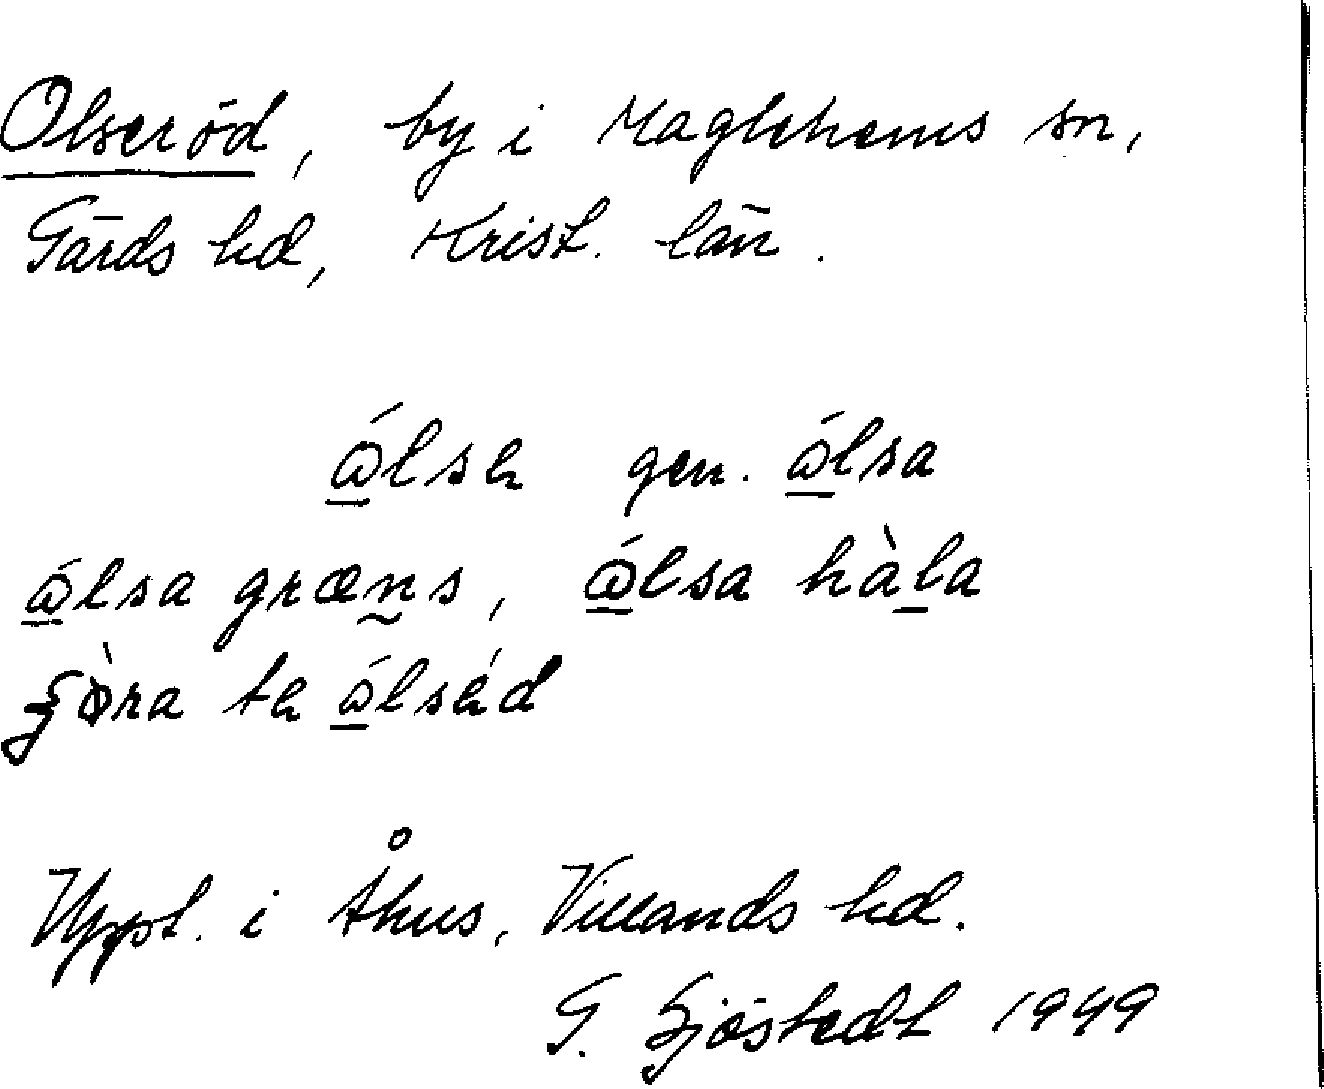 Olseröd, by i Maglehems sn,
Gärds hd, Krist. län.
ώ̱lsə gen. ώ̱lsa
ώ̱lsa græn̰s, ώ̱lsa hàḻa
tə ώ̱lsə́d
Uppt. i Åhus, Villands hd.
G. Sjöstedt 1949